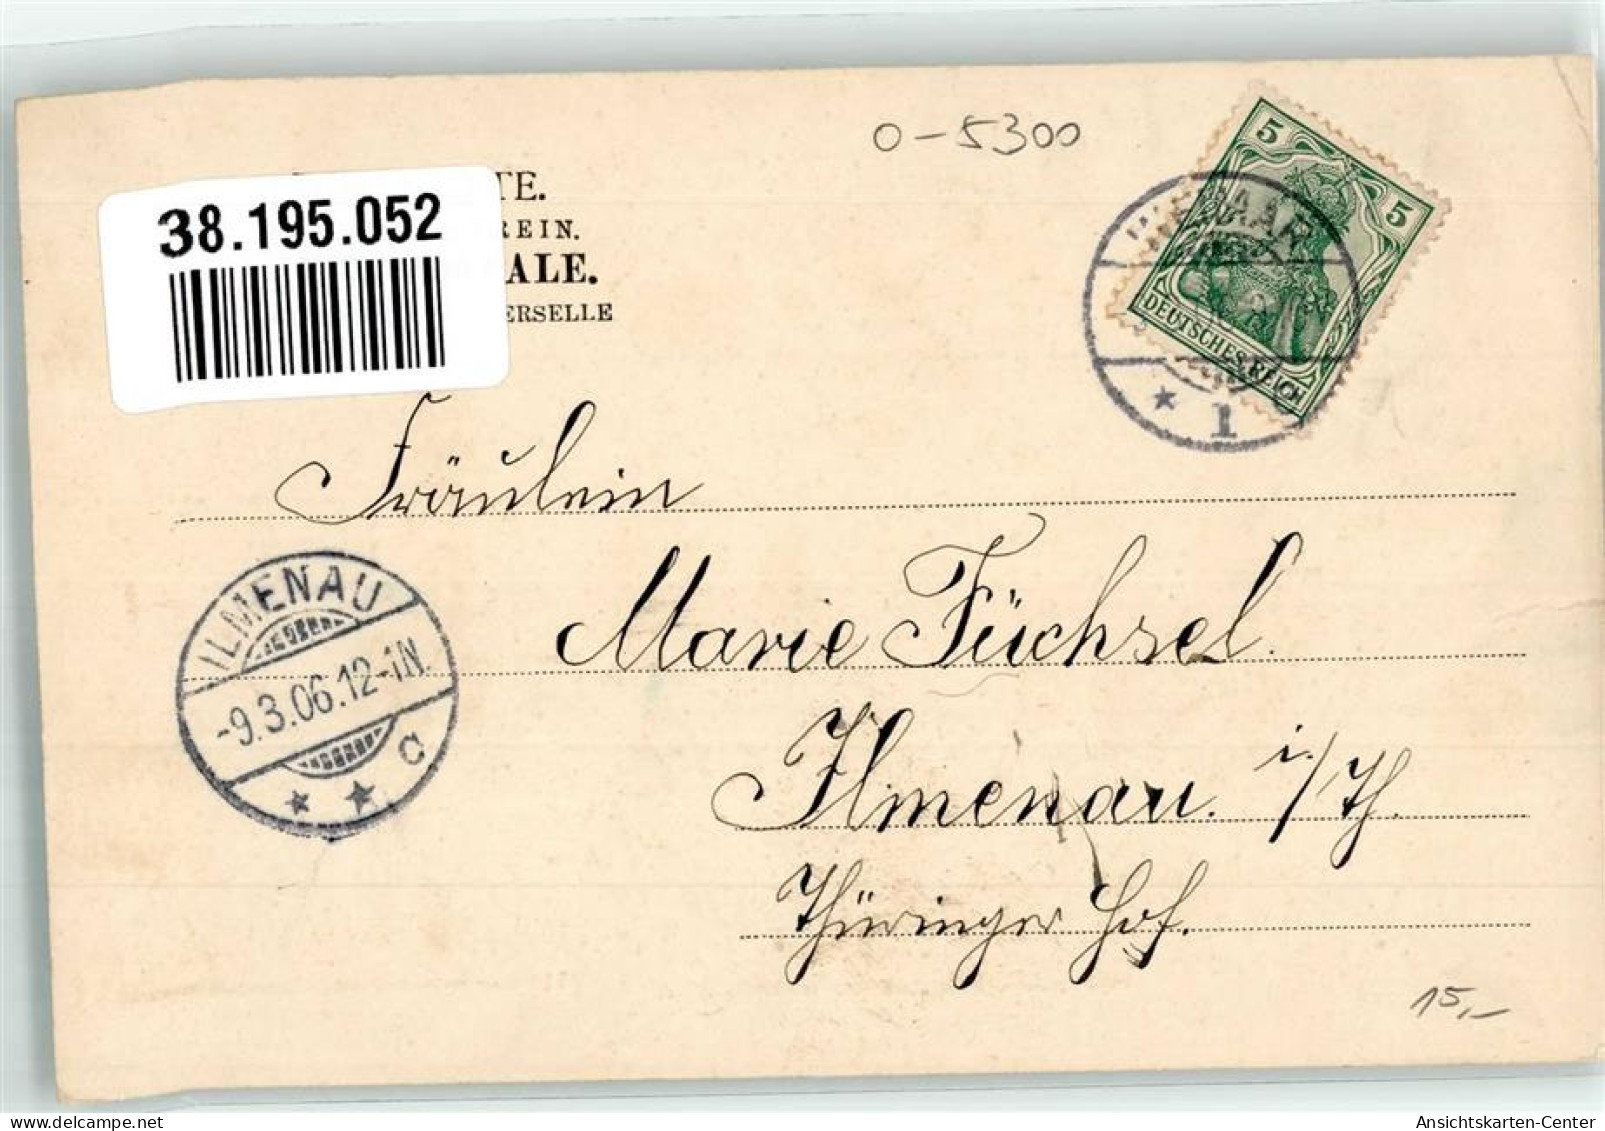 O-5300
TE.
38.195.052
REIN.
ALE.
ERSELLE
5
5
DEUTSCHES REICH
WEIMAR
* 1
Fräulein
Marie Füchsel.
Ilmenau. i/Th.
Thüringer Hof.
ILMENAU
-9.3.06.12-1N.
* * c
15,-
delcampe.net
Ansichtskarten-Center